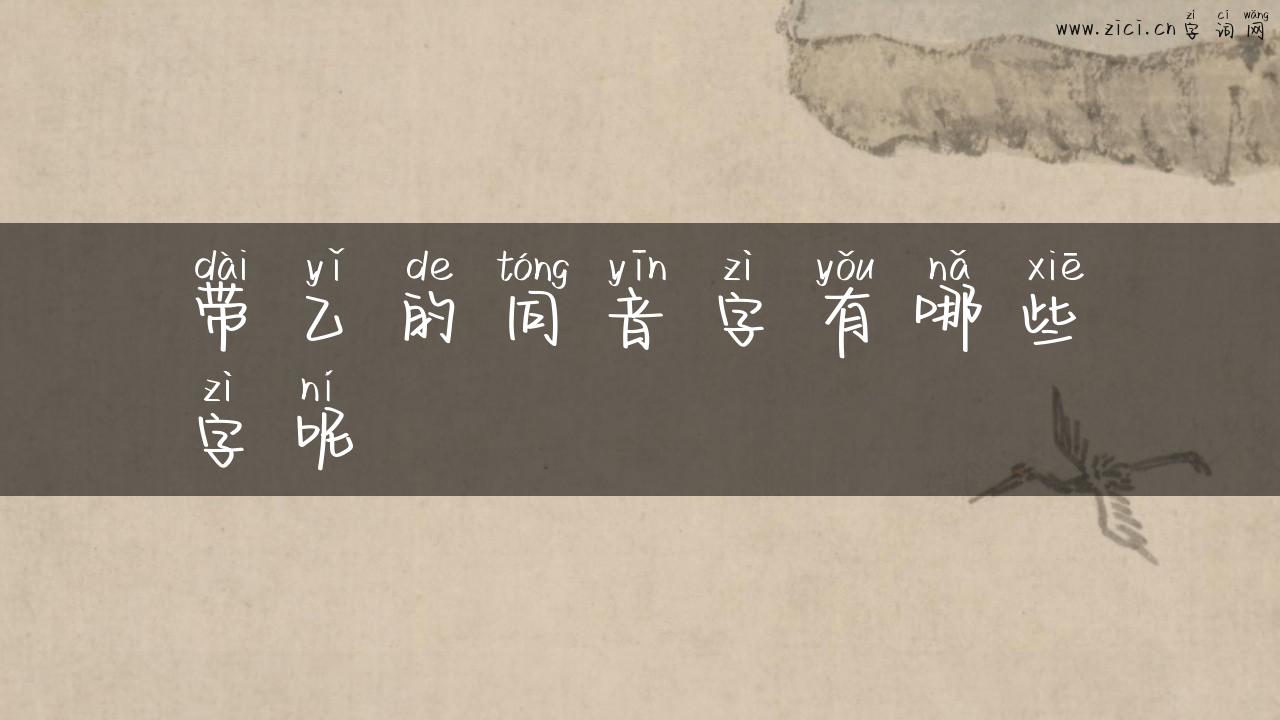 zì cí wǎng
www.zici.cn 字 词 网
dài yǐ de tóng yīn zì yǒu nǎ xiē
带 乙 的 同 音 字 有 哪 些
zì ní
字 呢